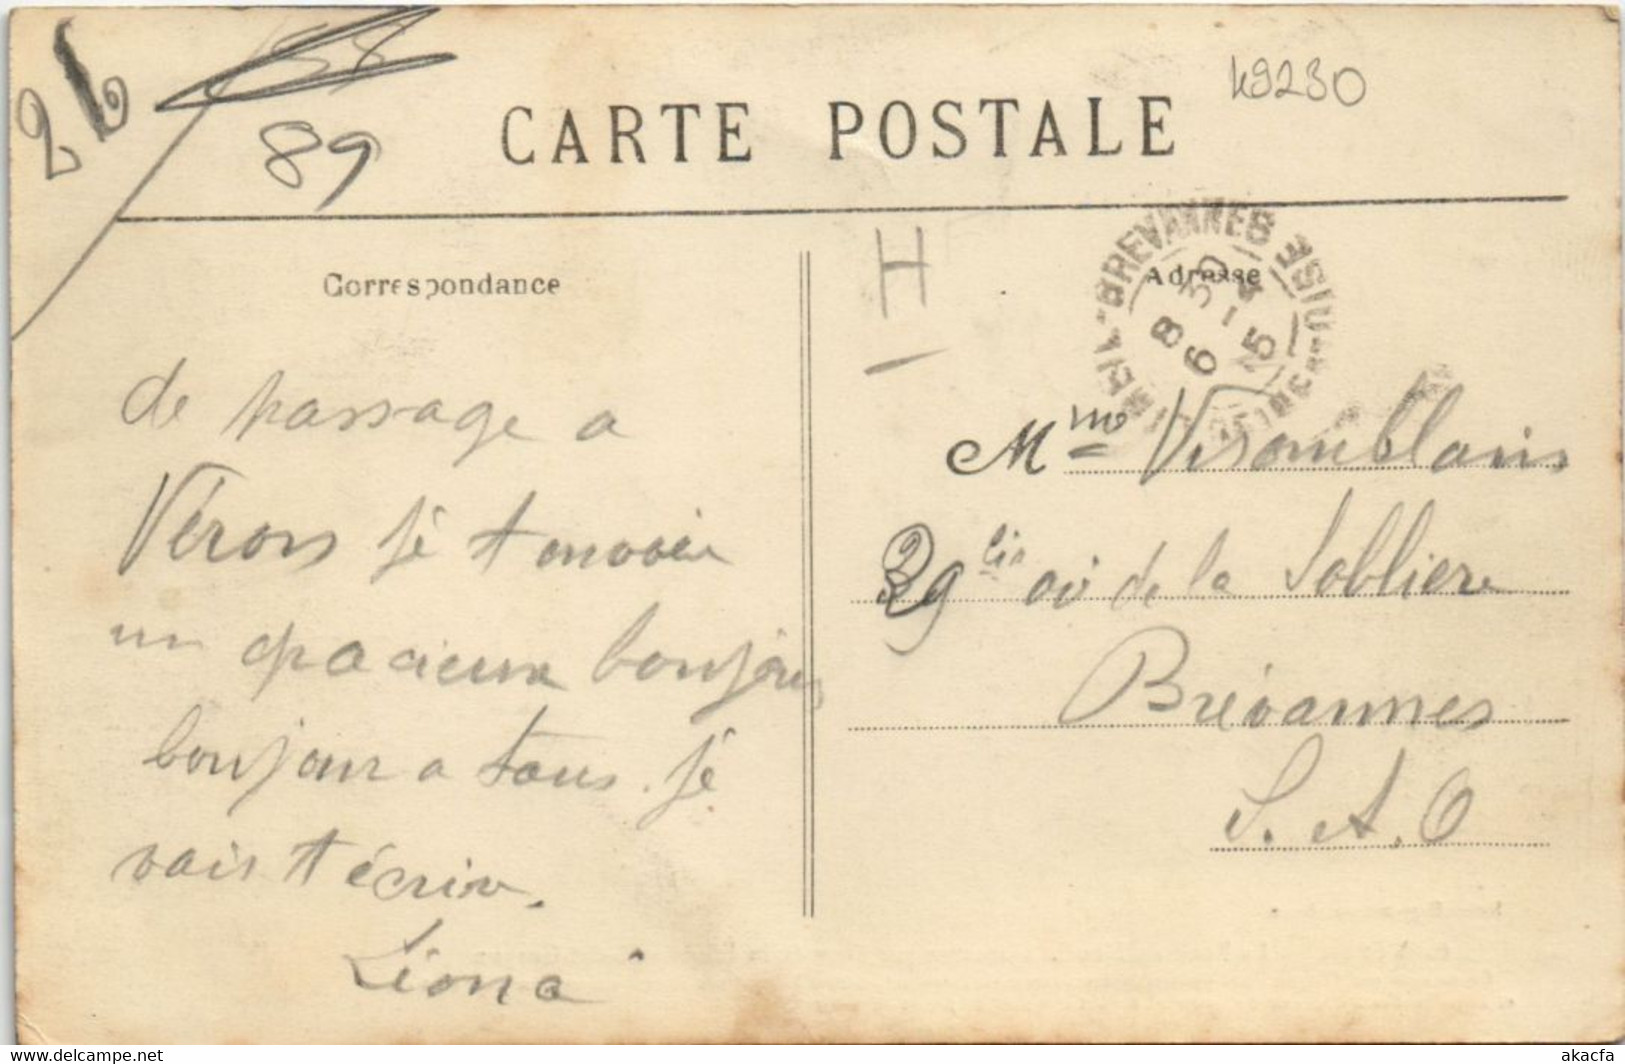 26
89
49230
CARTE POSTALE
Correspondance
Adresse
H
BREVANNES
8 30
6 - 4
25
de passage a
Vérons je t envoie
un gracieux bonjour
bonjour a tous. je
vais t écrire.
Léona
Mme
29 de la Sablière
Brévannes
S. A. O
www.delcampe.net
akacfa